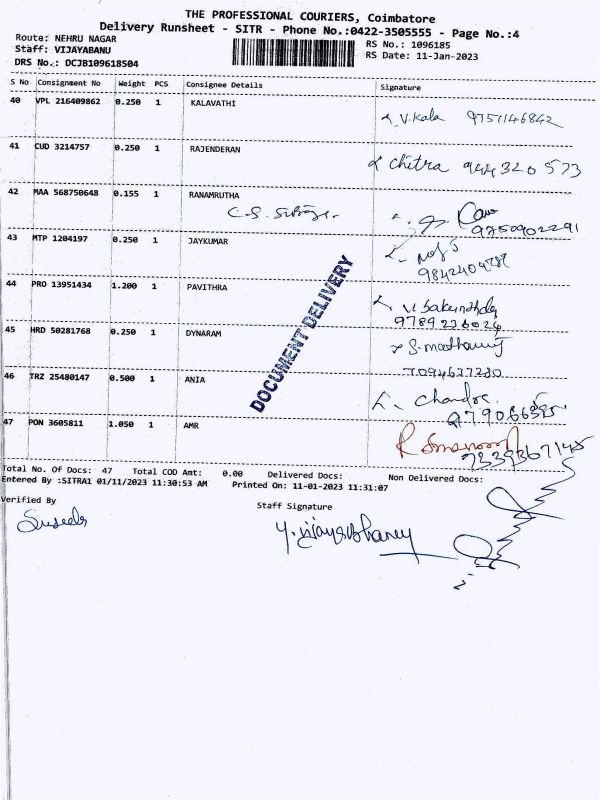 THE PROFESSIONAL COURIERS, Coimbatore
Delivery Runsheet - SITR - Phone No.:0422-3505555 - Page No.:4
Route: NEHRU NAGAR
RS No.: 1096185
Staff: VIJAYABANU
RS Date: 11-Jan-2023
DRS No.: DCJB109618504
S No Consignment No Weight PCS Consignee Details Signature
40 VPL 216409862 0.250 1 KALAVATHI
V.Kala 9757146842
41 CUD 3214757 0.250 1 RAJENDERAN
Chitra
42 MAA 568750648 0.155 1 RANAMRUTHA
9750902291
43 MTP 1204197 0.250 1 JAYKUMAR
44 PRO 13951434 1.200 1 PAVITHRA
45 HRD 50281768 0.250 1 DYNARAM
46 TRZ 25480147 0.500 1 ANIA
47 PON 3605811 1.050 1 AMR
DOCUMENT DELIVERY
Total No. Of Docs: 47 Total COD Amt: 0.00 Delivered Docs: Non Delivered Docs:
Entered By :SITRA1 01/11/2023 11:30:53 AM Printed On: 11-01-2023 11:31:07
Verified By Staff Signature